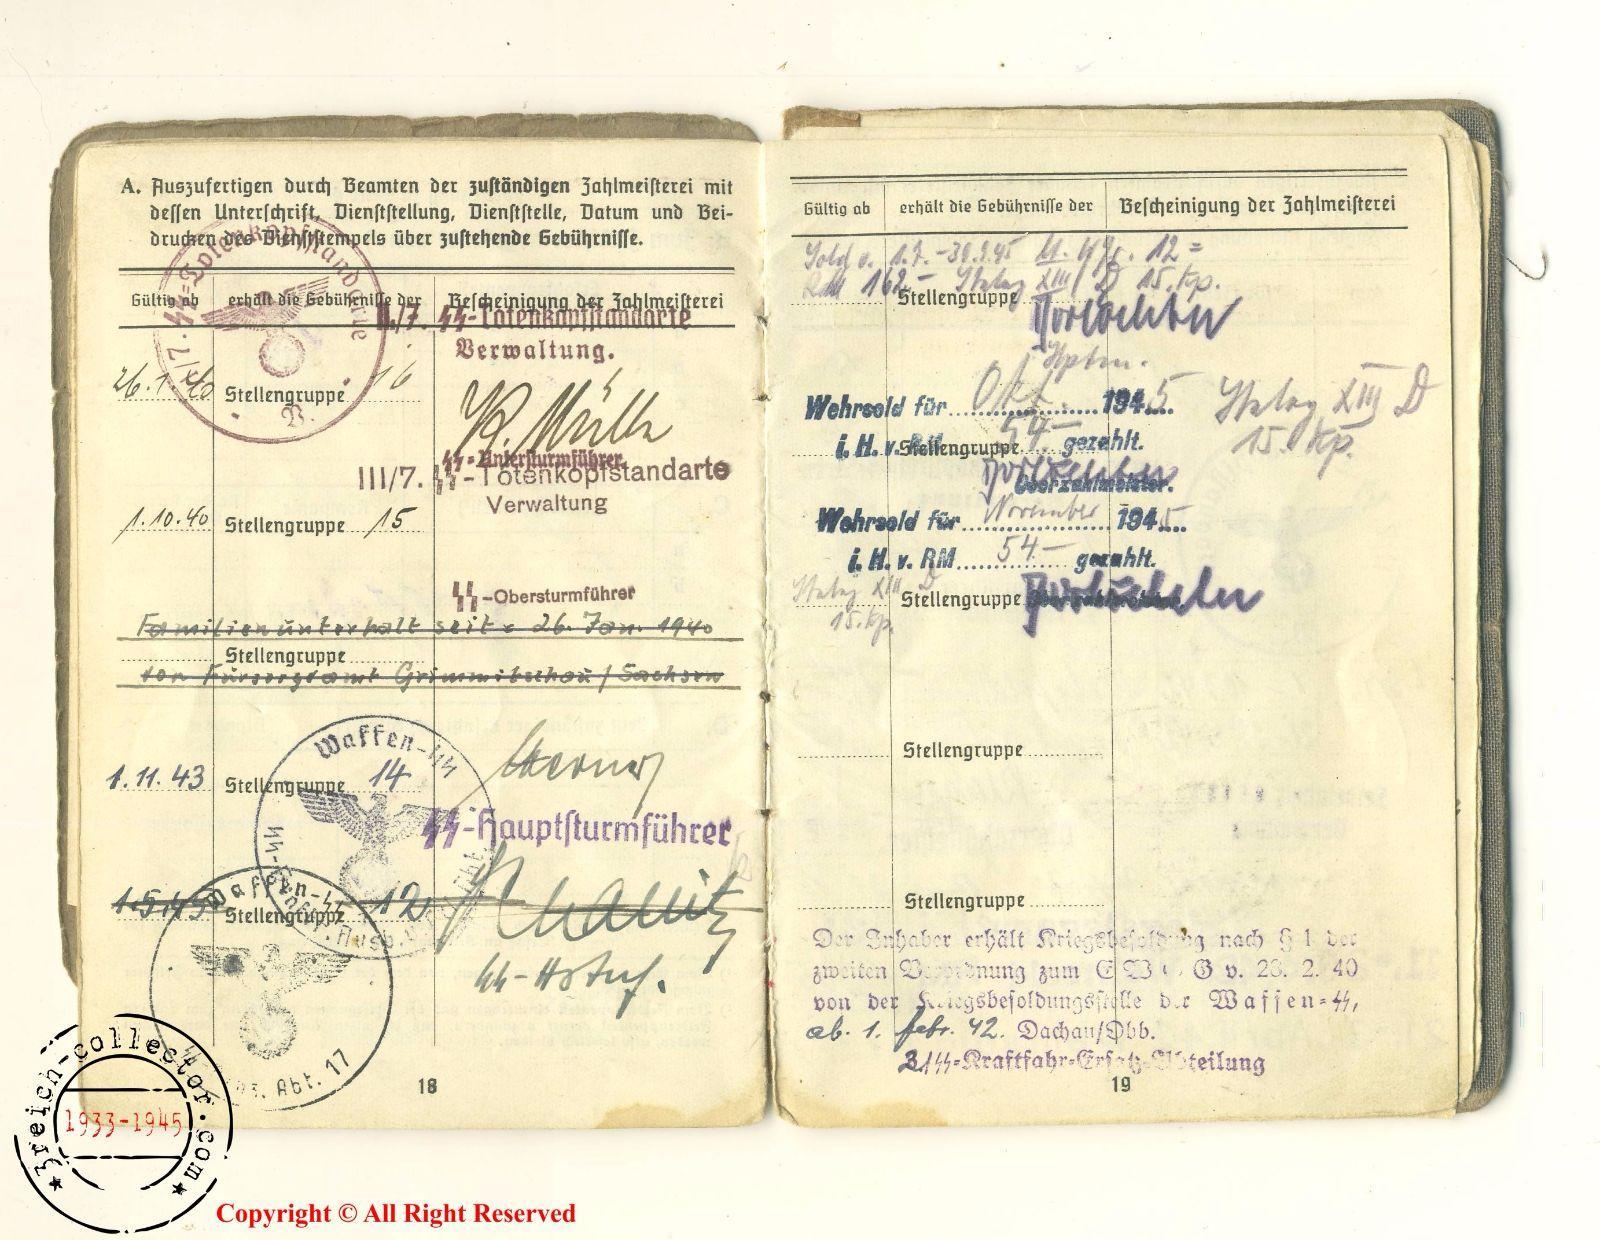 A. Auszufertigen durch Beamten der zuständigen Zahlmeisterei mit
dessen Unterschrift, Dienststellung, Dienststelle, Datum und Bei-
drucken des Dienststempels über zustehende Gebührnisse.
Gültig ab erhält die Gebührnisse der Bescheinigung der Zahlmeisterei
SS-Totenkopfstandarte
II./7. SS-Totenkopfstandarte
Verwaltung.
26.1.40 Stellengruppe 16
K. Müller
SS-Untersturmführer
III/7. SS-Totenkopfstandarte
Verwaltung
1.10.40 Stellengruppe 15
SS-Obersturmführer
Familienunterhalt seit 26. Jan. 1940
Stellengruppe
von Fürsorgeamt Crimmitschau / Sachsen
Waffen-SS
1.11.43 Stellengruppe 14
SS-Hauptsturmführer
1.5.45 Stellengruppe 12
SS-Hstuf.
Waffen-SS
Abt. 17
18
Gültig ab erhält die Gebührnisse der Bescheinigung der Zahlmeisterei
Sold v. 1.7.-30.9.45
RM 162- Stalag XIII D 15. Kp.
Stellengruppe
Hptm.
Wehrsold für Okt. 1945 Stalag XIII D
i. H. v. RM 54.- gezahlt. 15. Kp.
Stellengruppe
Oberzahlmeister.
Wehrsold für November 1945
i. H. v. RM 54.- gezahlt.
Stalag XIII D
Stellengruppe
15. Kp.
Stellengruppe
Stellengruppe
Der Inhaber erhält Kriegsbesoldung nach § 1 der
zweiten Verordnung zum E W G v. 28. 2. 40
von der Kriegsbesoldungsstelle der Waffen-SS,
ab 1. Febr. 42. Dachau/Obb.
SS-Kraftfahr-Ersatz-Abteilung
19
3reich-collector.com
1933-1945
Copyright © All Right Reserved